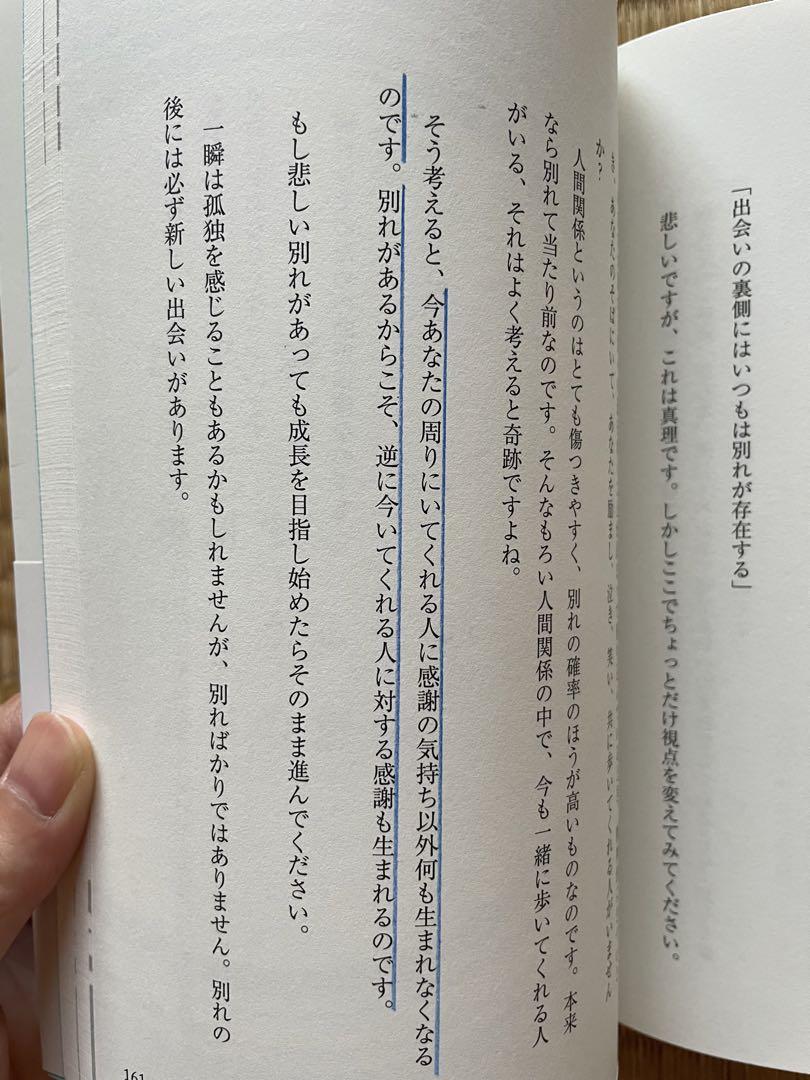 「出会いの裏側にはいつもは別れが存在する」
悲しいですが、これは真理です。しかしここでちょっとだけ視点を変えてみてください。
あなたのそばにいて、あなたを励まし、泣き、笑い、共に歩いてくれる人がいません
か？
人間関係というのはとても傷つきやすく、別れの確率のほうが高いものなのです。本来
なら別れて当たり前なのです。そんなもろい人間関係の中で、今も一緒に歩いてくれる人
がいる、それはよく考えると奇跡ですよね。
そう考えると、今あなたの周りにいてくれる人に感謝の気持ち以外何も生まれなくなる
のです。別れがあるからこそ、逆に今いてくれる人に対する感謝も生まれるのです。
もし悲しい別れがあっても成長を目指し始めたらそのまま進んでください。
一瞬は孤独を感じることもあるかもしれませんが、別ればかりではありません。別れの
後には必ず新しい出会いがあります。
161